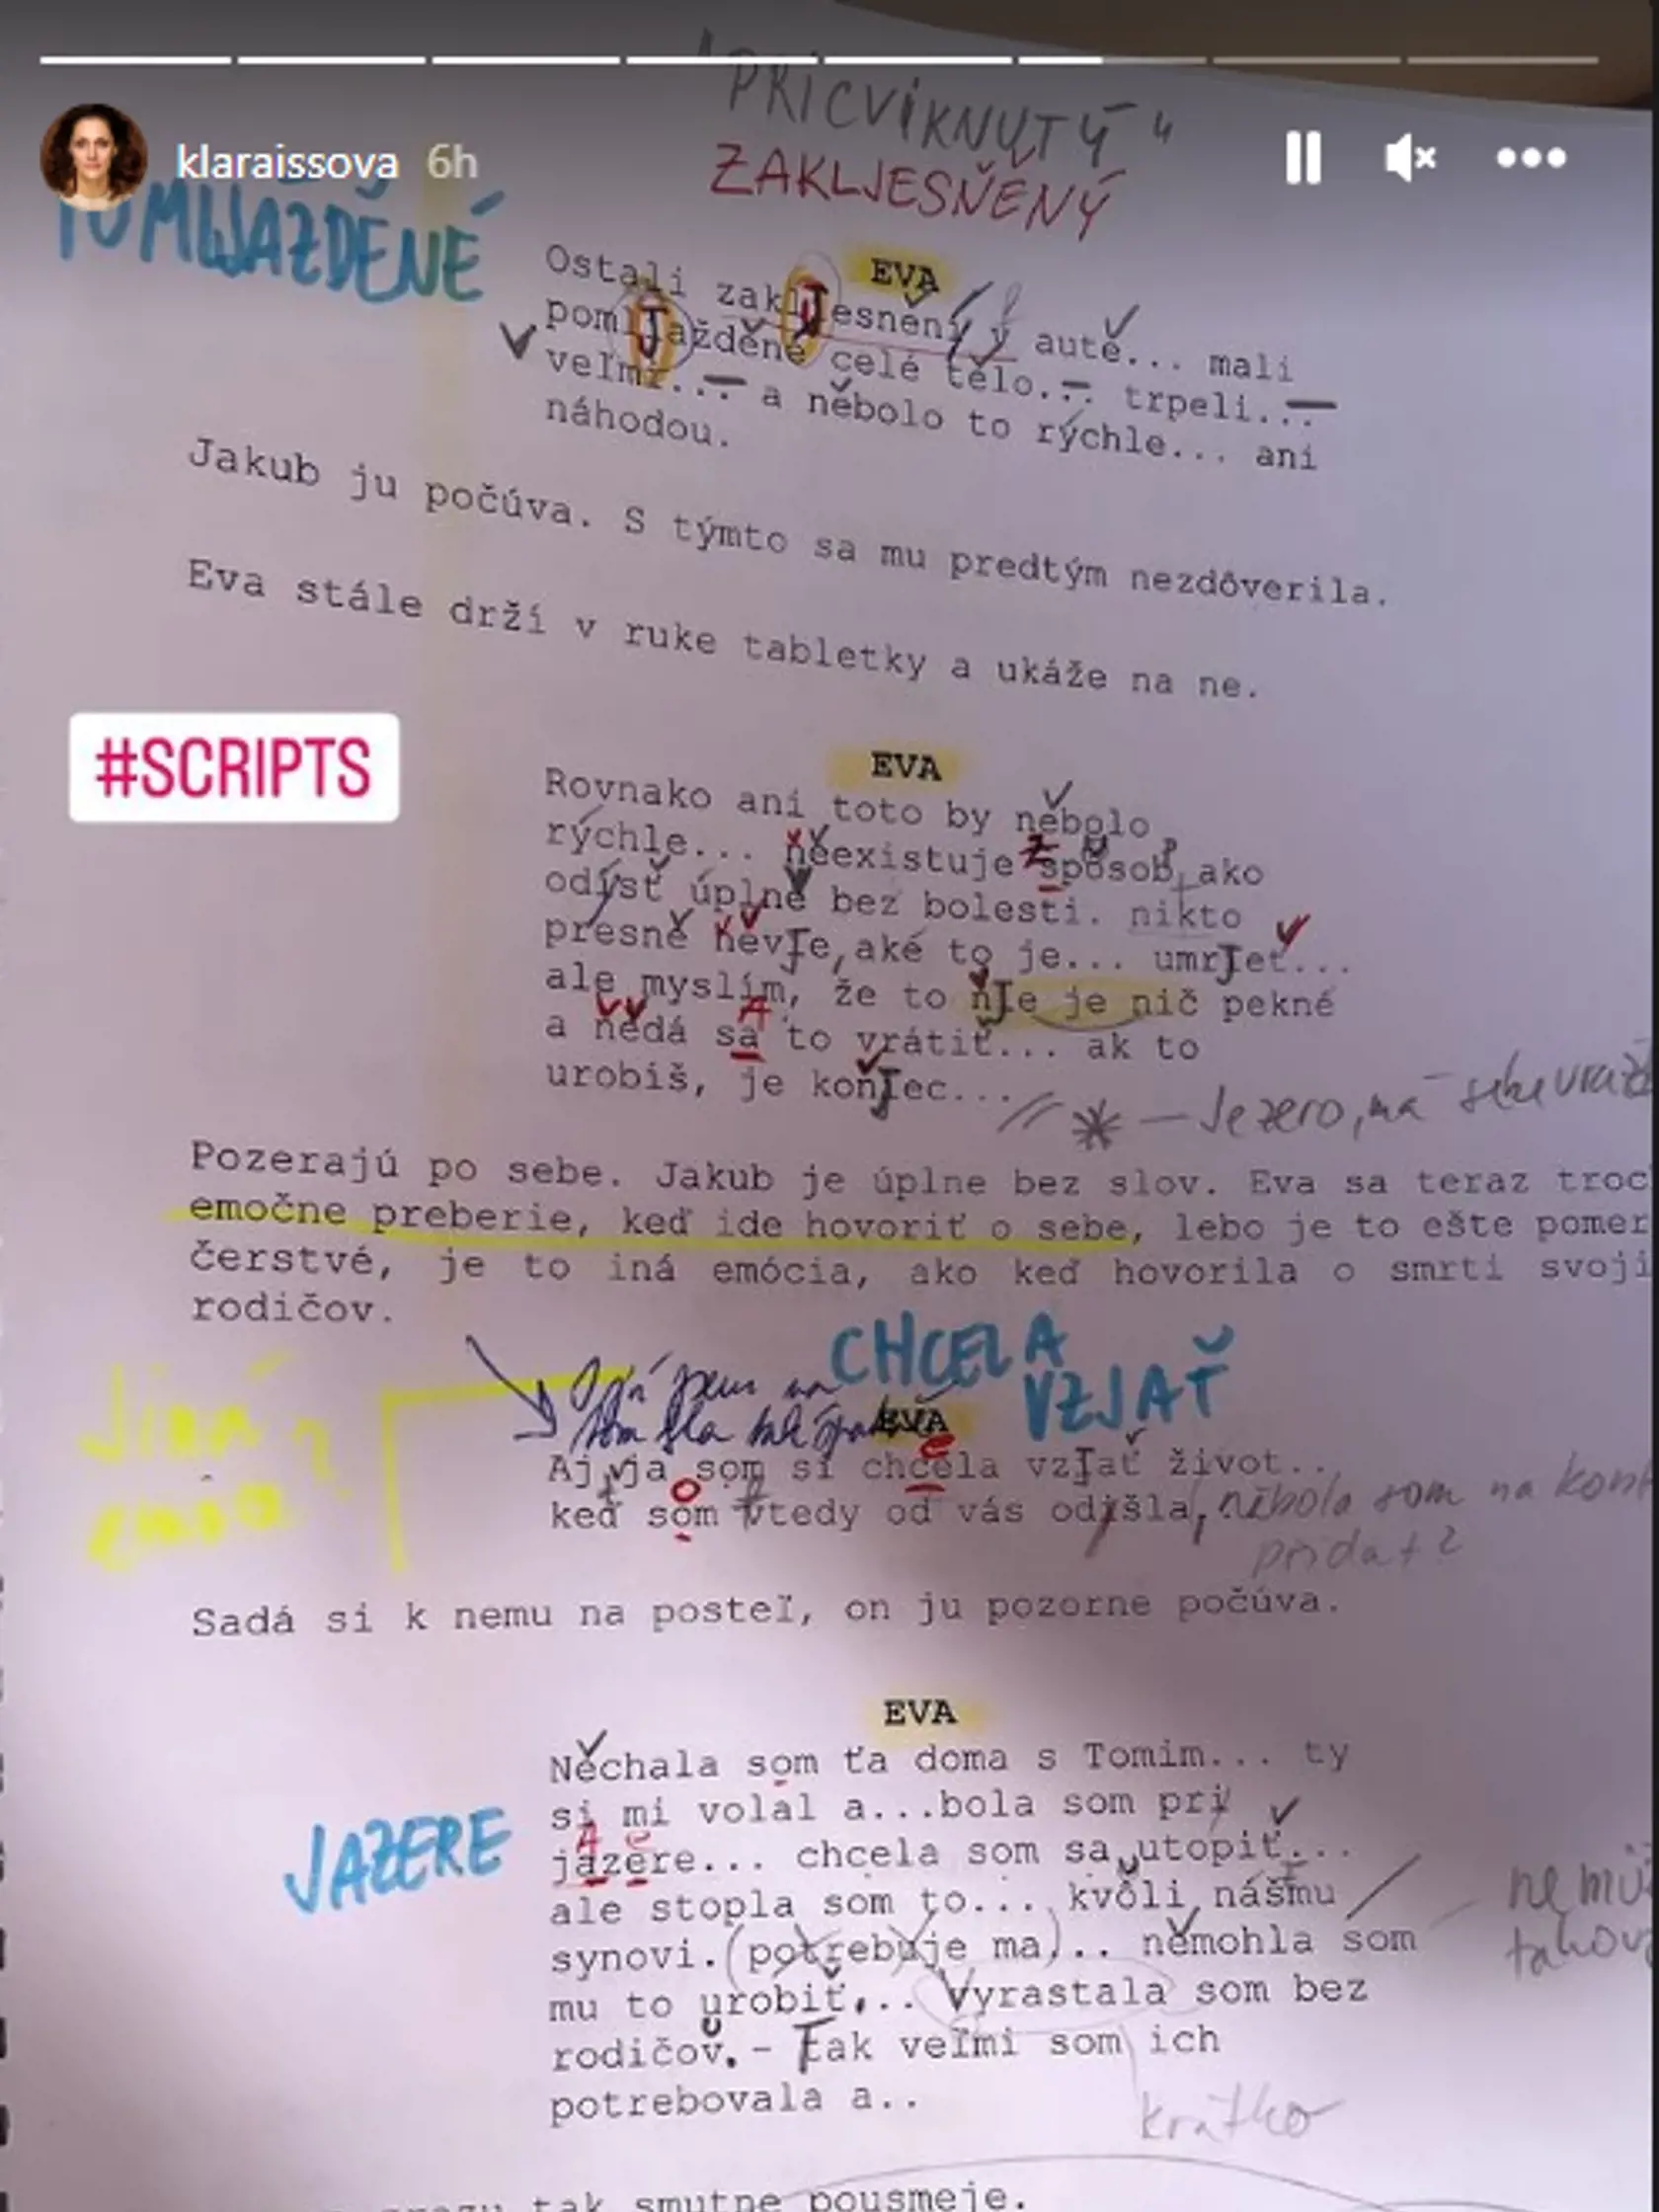 "PRICVIKNUTÝ"
klaraissova 6h
ZAKLJESŇĚNÝ
POMLJAŽDĚNÉ
EVA
Ostali zakljesnění v autě... mali
pomljažděné celé tělo... trpeli...
veľmi... a něbolo to rýchle... ani
náhodou.
Jakub ju počúva. S týmto sa mu predtým nezdôverila.
Eva stále drží v ruke tabletky a ukáže na ne.
#SCRIPTS
EVA
Rovnako ani toto by něbolo
rýchle... něexistuje spôsob, ako
odísť úplně bez bolesti. nikto
presně něvJe, aké to je... umrJeť...
ale myslím, že to nJe je nič pekné
a nědá sa to vrátiť... ak to
urobíš, je konJec...
* – Jezero, má
Pozerajú po sebe. Jakub je úplne bez slov. Eva sa teraz troc
emočne preberie, keď ide hovoriť o sebe, lebo je to ešte pomer
čerstvé, je to iná emócia, ako keď hovorila o smrti svoji
rodičov.
CHCELA
VZJAŤ
Jiná
emoce
EVA
Aj ja som si chcela vzJať život..
keď som vtedy od vás odišla, něbola som na
přidat?
Sadá si k nemu na posteľ, on ju pozorne počúva.
EVA
Něchala som ťa doma s Tomim... ty
si mi volal a...bola som pri
JAZERE
jazere... chcela som sa utopiť...
ale stopla som to... kvôli nášmu
synovi. (potrebuje ma)... němohla som
mu to urobiť... Vyrastala som bez
rodičov. - Tak veľmi som ich
potrebovala a..
krátko
tak smutne pousmeje.